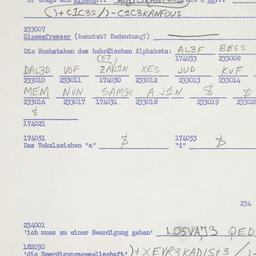 )+C1C3S/)-C1C3KANFOUS
233007
Eisenfresser (benutzt? Bedeutung?)
Die Buchstaben des hebräischen Alphabets: AL3F BE$$
174033 233008
DAL3D VOF ZAJIN XES JUD KUF
233010 233011 174030 233012 233013 233014
MEM NUN SAM3X AJIN $ $
233016 233017 174031 233018 233019
$
174021
174051 $ 174053 $
Das Vokalzeichen "a" "i"
234
234001
'ich muss zu einer Beerdigung gehen' LOSVAJ3 QED
182030
'die Beerdigungsgesellschaft' )+XEVR3KADIST3/)-